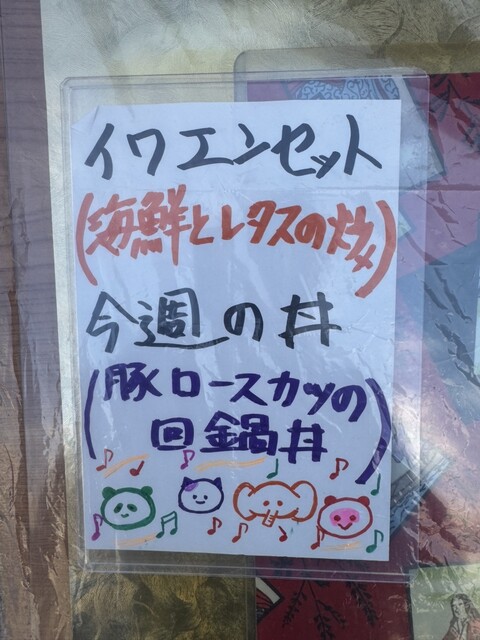 イワエンセット
(海鮮とレタスの炒メ)
今週の丼
(豚ロースカツの
回鍋丼)